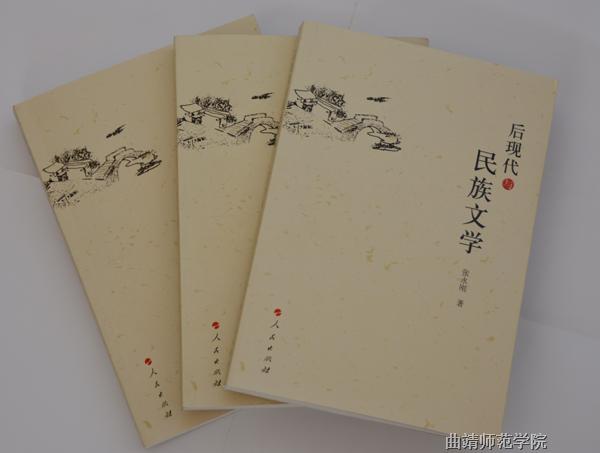 后现代与
民族文学
张永刚 著
人民出版社
人民出版社
人民出版社
曲靖师范学院